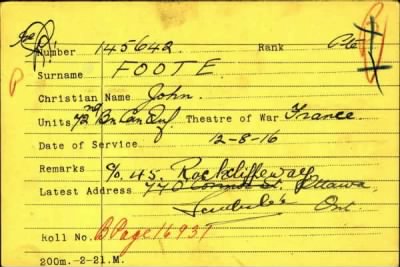 Number 145642 Rank Pte
Surname FOOTE
Christian Name John.
Units 72nd Bn Can Inf. Theatre of War France
Date of Service 12-8-16
Remarks 45. Rockcliffeway
Latest Address 770 Connor St. Ottawa
Ont.
Roll No. B Page 16937
200m.-2-21.M.